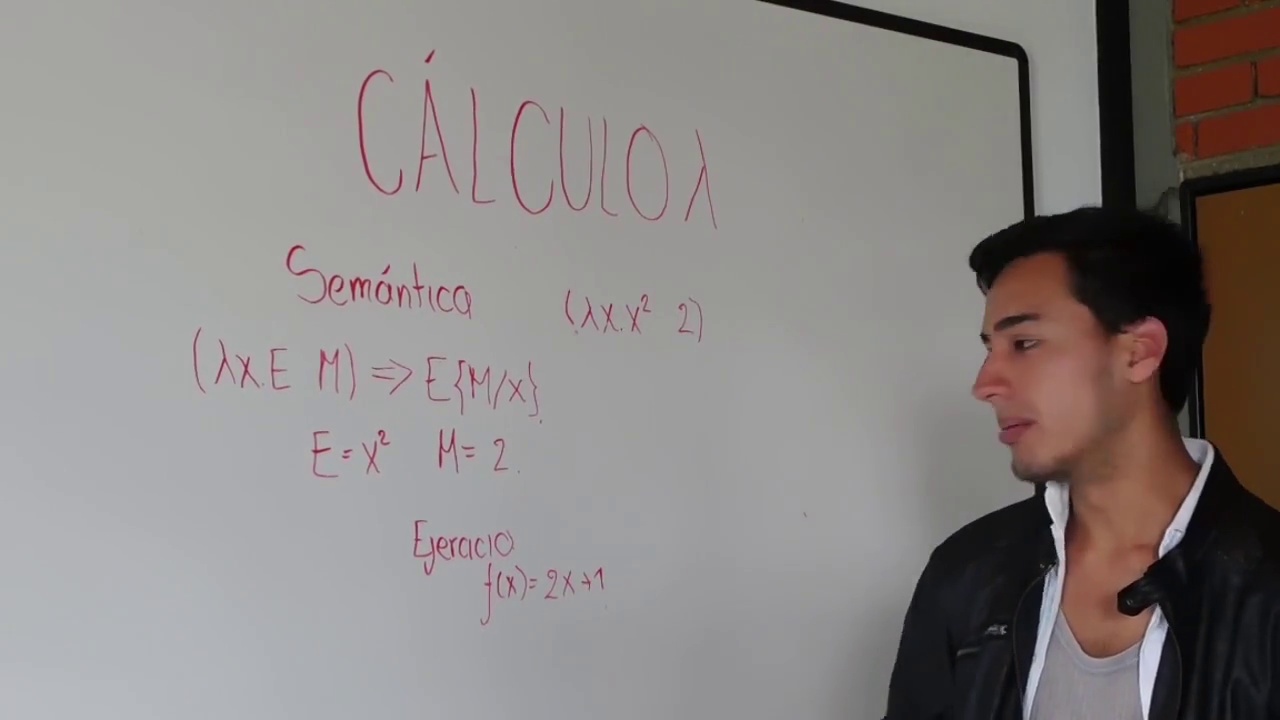 CÁLCULO λ
Semántica (λx.x² 2)
(λx.E M) => E{M/x}.
E=x² M= 2.
Ejercicio
f(x)= 2x+1